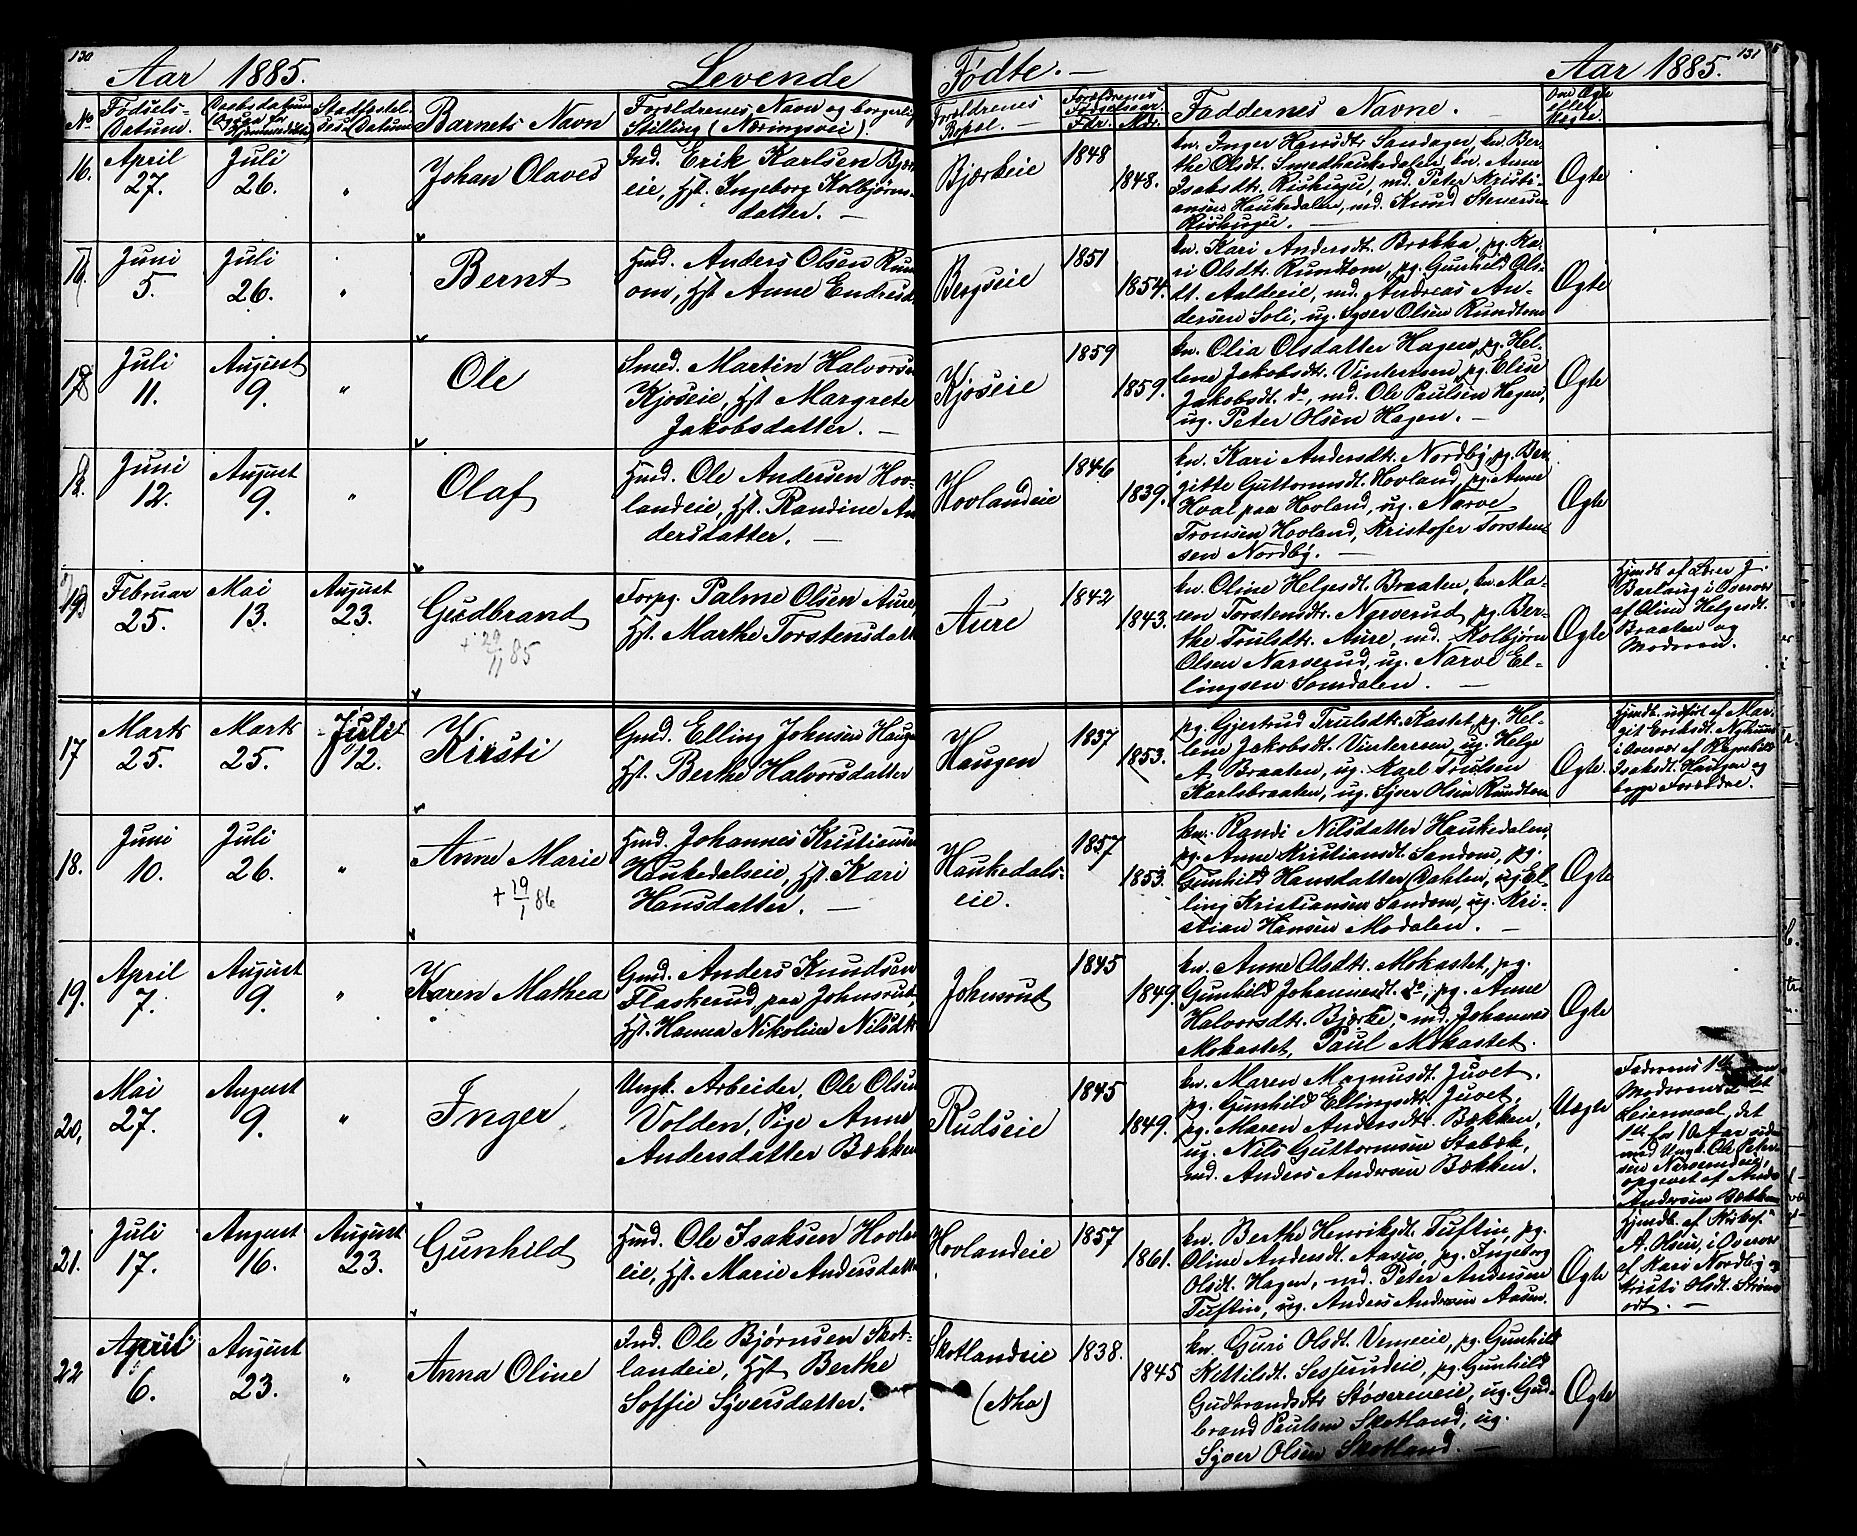 130
Aar 1885.
Levende
Fødte. —
Aar 1885.
131
No
Fødsels-
Datum.
Daabsdatum
Stadfæstel-
ses Datum
Barnets Navn
Forældrenes Navn og borgerlig
Stilling (Næringsvei)
Forældrenes
Bopæl. —
Forældrenes
Fødselsaar.
Fdr.
Mdr.
Faddernes Navne. —
Om Ægte
eller
Uægte.
16.
April
27.
Juli
26.
"
Johan Olaves
Ind. Erik Karlsen Bjør-
eie, Hst. Ingeborg Kolbjørns-
datter. —
Bjørkeie
1848
1848.
kn. Inger Hansdt. Sandager, kn. Ber-
the Olsdt. Smedhaukedalen, kn. Anne
Isaksdt. Rishugu, md. Peter Kristi-
ansen Haukedalen, md. Knud Stenersen
Rishugu. —
Ægte
Juni
5.
Juli
26.
"
Bernt
Hmd. Anders Olsen Run
om, Hst. Anne Endresdt
Bergseie
1851
1854.
kn. Kari Andersdt. Brækka, pg. Ka-
ri Olsdt. Rundtom, pg. Gunhild Ols-
dt. Aaldeeie, md. Andreas An-
dersen Soli, ug. Syver Olsen Rundtom
Ægte
18
Juli
11.
August
9.
"
Ole
Smed. Martin Halvorsen
Kjoseie, Hst Margrete
Jakobsdatter. —
Kjoseie
1859
1859.
kn. Olia Olsdatter Hagen, pg. Hel-
lene Jakobsdt. Vinteren, pg. Elise
Jakobsdt. do, md. Ole Paulsen Hagen,
ug. Peter Olsen Hagen. —
Ægte
Juni
12.
August
9.
"
Olaf
Hmd. Ole Andersen Hov-
landeie, Hst. Randine An
dersdatter. —
Hovlandeie
1846
1839.
kn. Kari Andersdt. Nordby, pg. Ber-
gitte Guttormsdt. Hovland, pg. Anne
Hval paa Hovland, ug. Narve
Tronsen Hovland, Kristofer Torsten-
sen Nordby. —
Ægte
Februar
25.
Mai
13.
August
23.
Gudbrand
+ 29/11 85
Forpg. Palme Olsen Aure,
Hst. Marthe Torstensdatt
Aure
1842
1843.
kn. Oline Helgesdt. Braaten, kn. Ma-
ren Torstensdt. Narverud, pg. Ber-
the Trulsdt. Aure, md. Kolbjørn
Olsen Narverud, ug. Narve El-
lingsen Somdalen. —
Ægte
Hjemdt. af Lærer J.
Berlaug i Overvær
af Oline Helgesdt.
Braaten og
Moderen.
17
Marts
25.
Marts
25.
Juli
12.
Kirsti
Gmd. Elling Johnsen Haugen
Hst. Berthe Halvorsdatter
Haugen
1837
1853.
pg. Gjertrud Trulsdt. Kastet, pg. Hel-
lene Jakobsdt. Vinteren, ug. Helge
A. Braaten, ug. Karl Trulsen
Karlsbraaten, ug. Syver Olsen Rundtom
Ægte.
Hjemdt. udført af Mar-
git Eriksdt. Nyhuus
i Overvær af Ragnhild
Isaksdt. Haugen og
begge Forældre.
18.
Juni
10.
Juli
26.
"
Anne Marie
+ 19/1 86
Hmd. Johannes Kristiansen
Haukedalseie, Hst. Kari
Hansdatter. —
Haukedals-
eie.
1857
1853.
kn. Randi Nilsdatter Haukedalen,
pg. Anne Kristiansdt. Sandom, pg.
Gunhild Hansdatter Dahlen, ug. El-
ling Kristiansen Sandom, ug. Kri-
stian Hansen Modalen. —
Ægte
19.
April
7.
August
9.
"
Karen Mathea
Gmd. Anders Knudsen
Flaskerud paa Johnsrut,
Hst. Hanna Nikoline Nilsdt.
Johnsrut
1845
1849.
kn. Anne Olsdt. Mokastet, pg.
Gunhild Johannesdt. do, pg. Anne
Halvorsdt. Bjørke, md. Johannes
Mokastet, Paul Mokastet.
Ægte
20.
Mai
27.
August
9.
"
Inger
Ungk. Arbeider, Ole Olsen
Volden, Pige Anne
Andersdatter Bækken
Rudseie
1845
1849.
kn. Maren Magnusdt. Juvet,
pg. Gunhild Ellingsdt. Juvet,
pg. Maren Andersdt. Bækken,
ug. Nils Guttormsen Stabæk,
md. Anders Andersen Bækken.
Uægte
Faderens 1ste
Moderens 2det
Leiermaal, det
1ste for 10 Aar siden
med Ungk. Ole Peter-
sen Narverudeie,
opgivet af Anders
Andersen Bækken
21.
Juli
17.
August
16.
August
23.
Gunhild
Hmd. Ole Isaksen Hovlan
eie, Hst. Marie Andersdatt
Hovlandeie
1857
1861.
kn. Berthe Henriksdt. Tuftin, pg.
Oline Andersdt. Aasen, pg. Ingeborg
Olsdt. Hagen, md. Peter Andersen
Tuftin, ug. Anders Andersen Aasen.
Ægte
Hjemdt. af Kirkes.
A. Olsen, i Overvær
af Kari Nordby og
Kristi Olsdt. Strøm-
odt. —
22
April
6.
August
23.
"
Anna Oline
Ind. Ole Bjørnsen Skot-
landeie, Hst Berthe
Soffie Syversdatter.
Skotlandeie
(Nho)
1838.
1845
kn. Guri Olsdt. Vemeeie, pg. Gunhild
Kettilsdt. Sesserudeie, pg. Gunhild
Gudbrandsdt. Støvereneie, ug. Gud-
brand Paulsen Skotland, ug.
Syver Olsen Skotland. —
Ægte